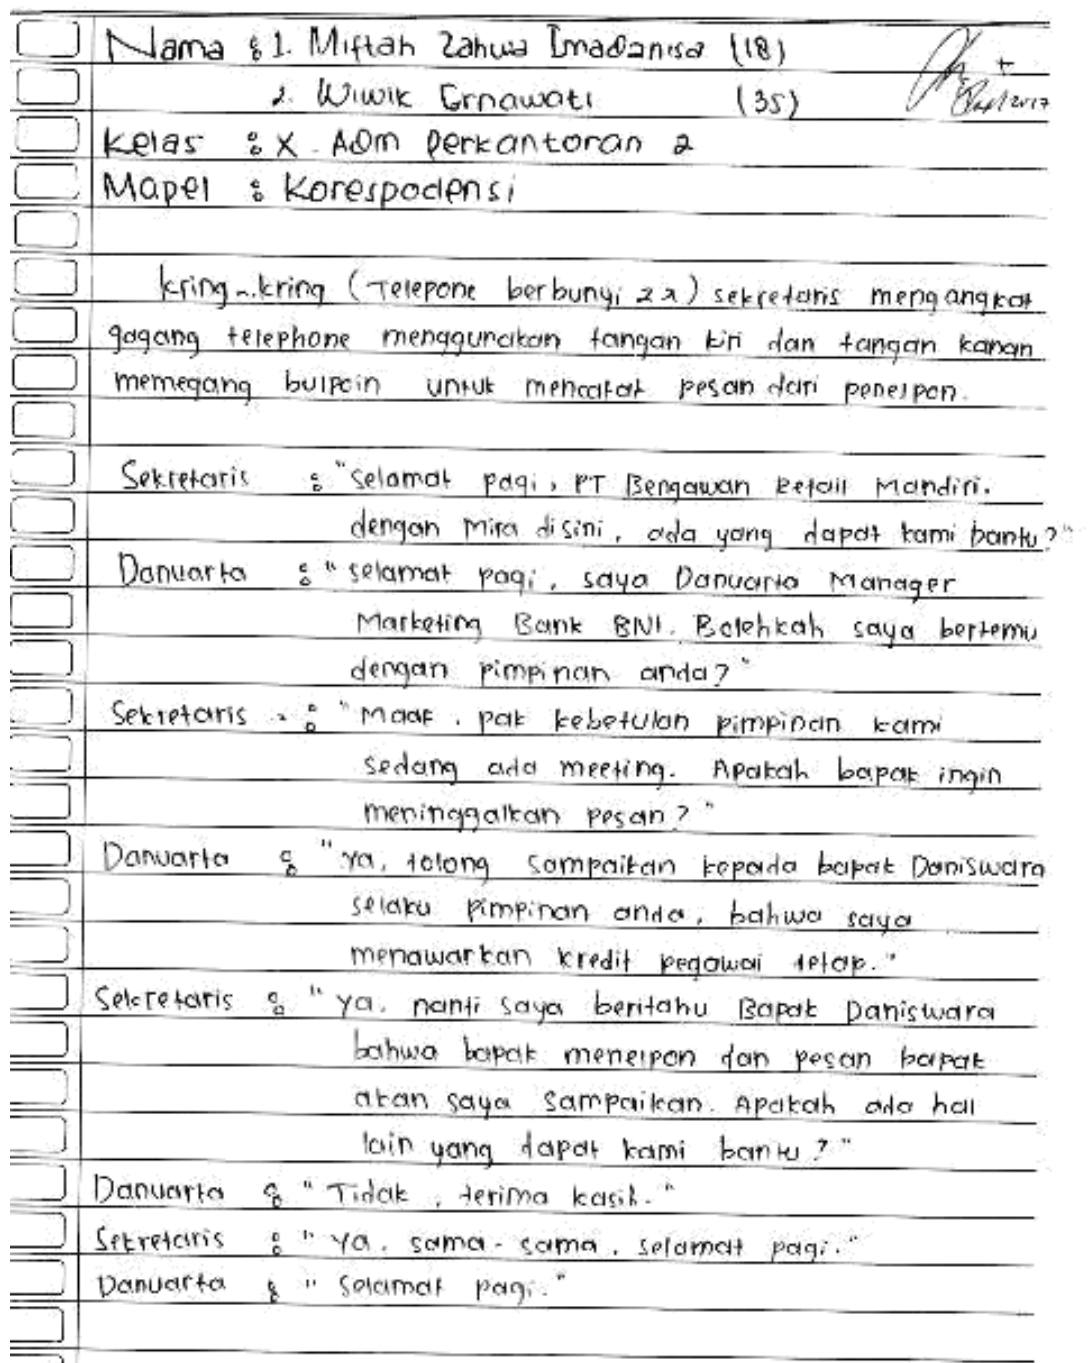 Nama : 1. Miftah Zahwa Imadanisa (18)
2. Wiwik Ernawati (35)
Kelas : X. ADm Perkantoran 2
Mapel : Korespodensi
kring-kring (Telepone berbunyi 2x) sekretaris mengangkat
gagang telephone menggunakan tangan kiri dan tangan kanan
memegang bulpoin untuk mencatat pesan dari penelpon.
Sekretaris : "Selamat pagi, PT Bengawan Retail Mandiri.
dengan Mira disini, ada yang dapat kami bantu?"
Danuarta : "selamat pagi, saya Danuarta Manager
Marketing Bank BNI. Bolehkah saya bertemu
dengan pimpinan anda?"
Sekretaris : "Maaf, pak kebetulan pimpinan kami
sedang ada meeting. Apakah bapak ingin
meninggalkan pesan?"
Danuarta : "ya, tolong sampaikan kepada bapak Daniswara
selaku pimpinan anda, bahwa saya
menawarkan kredit pegawai tetap."
Sekretaris : "ya. nanti saya beritahu Bapak Daniswara
bahwa bapak menelpon dan pesan bapak
akan saya sampaikan. Apakah ada hal
lain yang dapat kami bantu?"
Danuarta : "Tidak, terima kasih."
Sekretaris : "ya. sama-sama, selamat pagi."
Danuarta : "Selamat pagi."